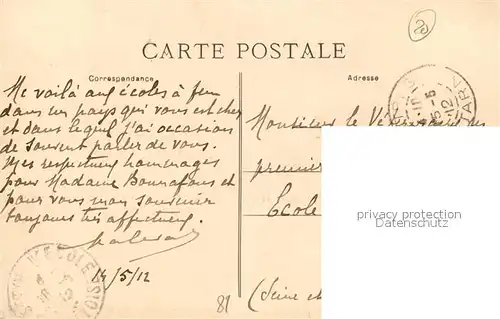 CARTE POSTALE
Correspondance
Adresse
Me voilà aux écoles à feu
dans un pays qui vous est cher
et dans lequel j'ai occasion
de souvent parler de vous.
Mes respectueux hommages
pour Madame Bonnafous et
pour vous mon souvenir
toujours très affectueux.
14/5/12
Monsieur le
premier
Ecole
(Seine et
81
privacy protection
watermark